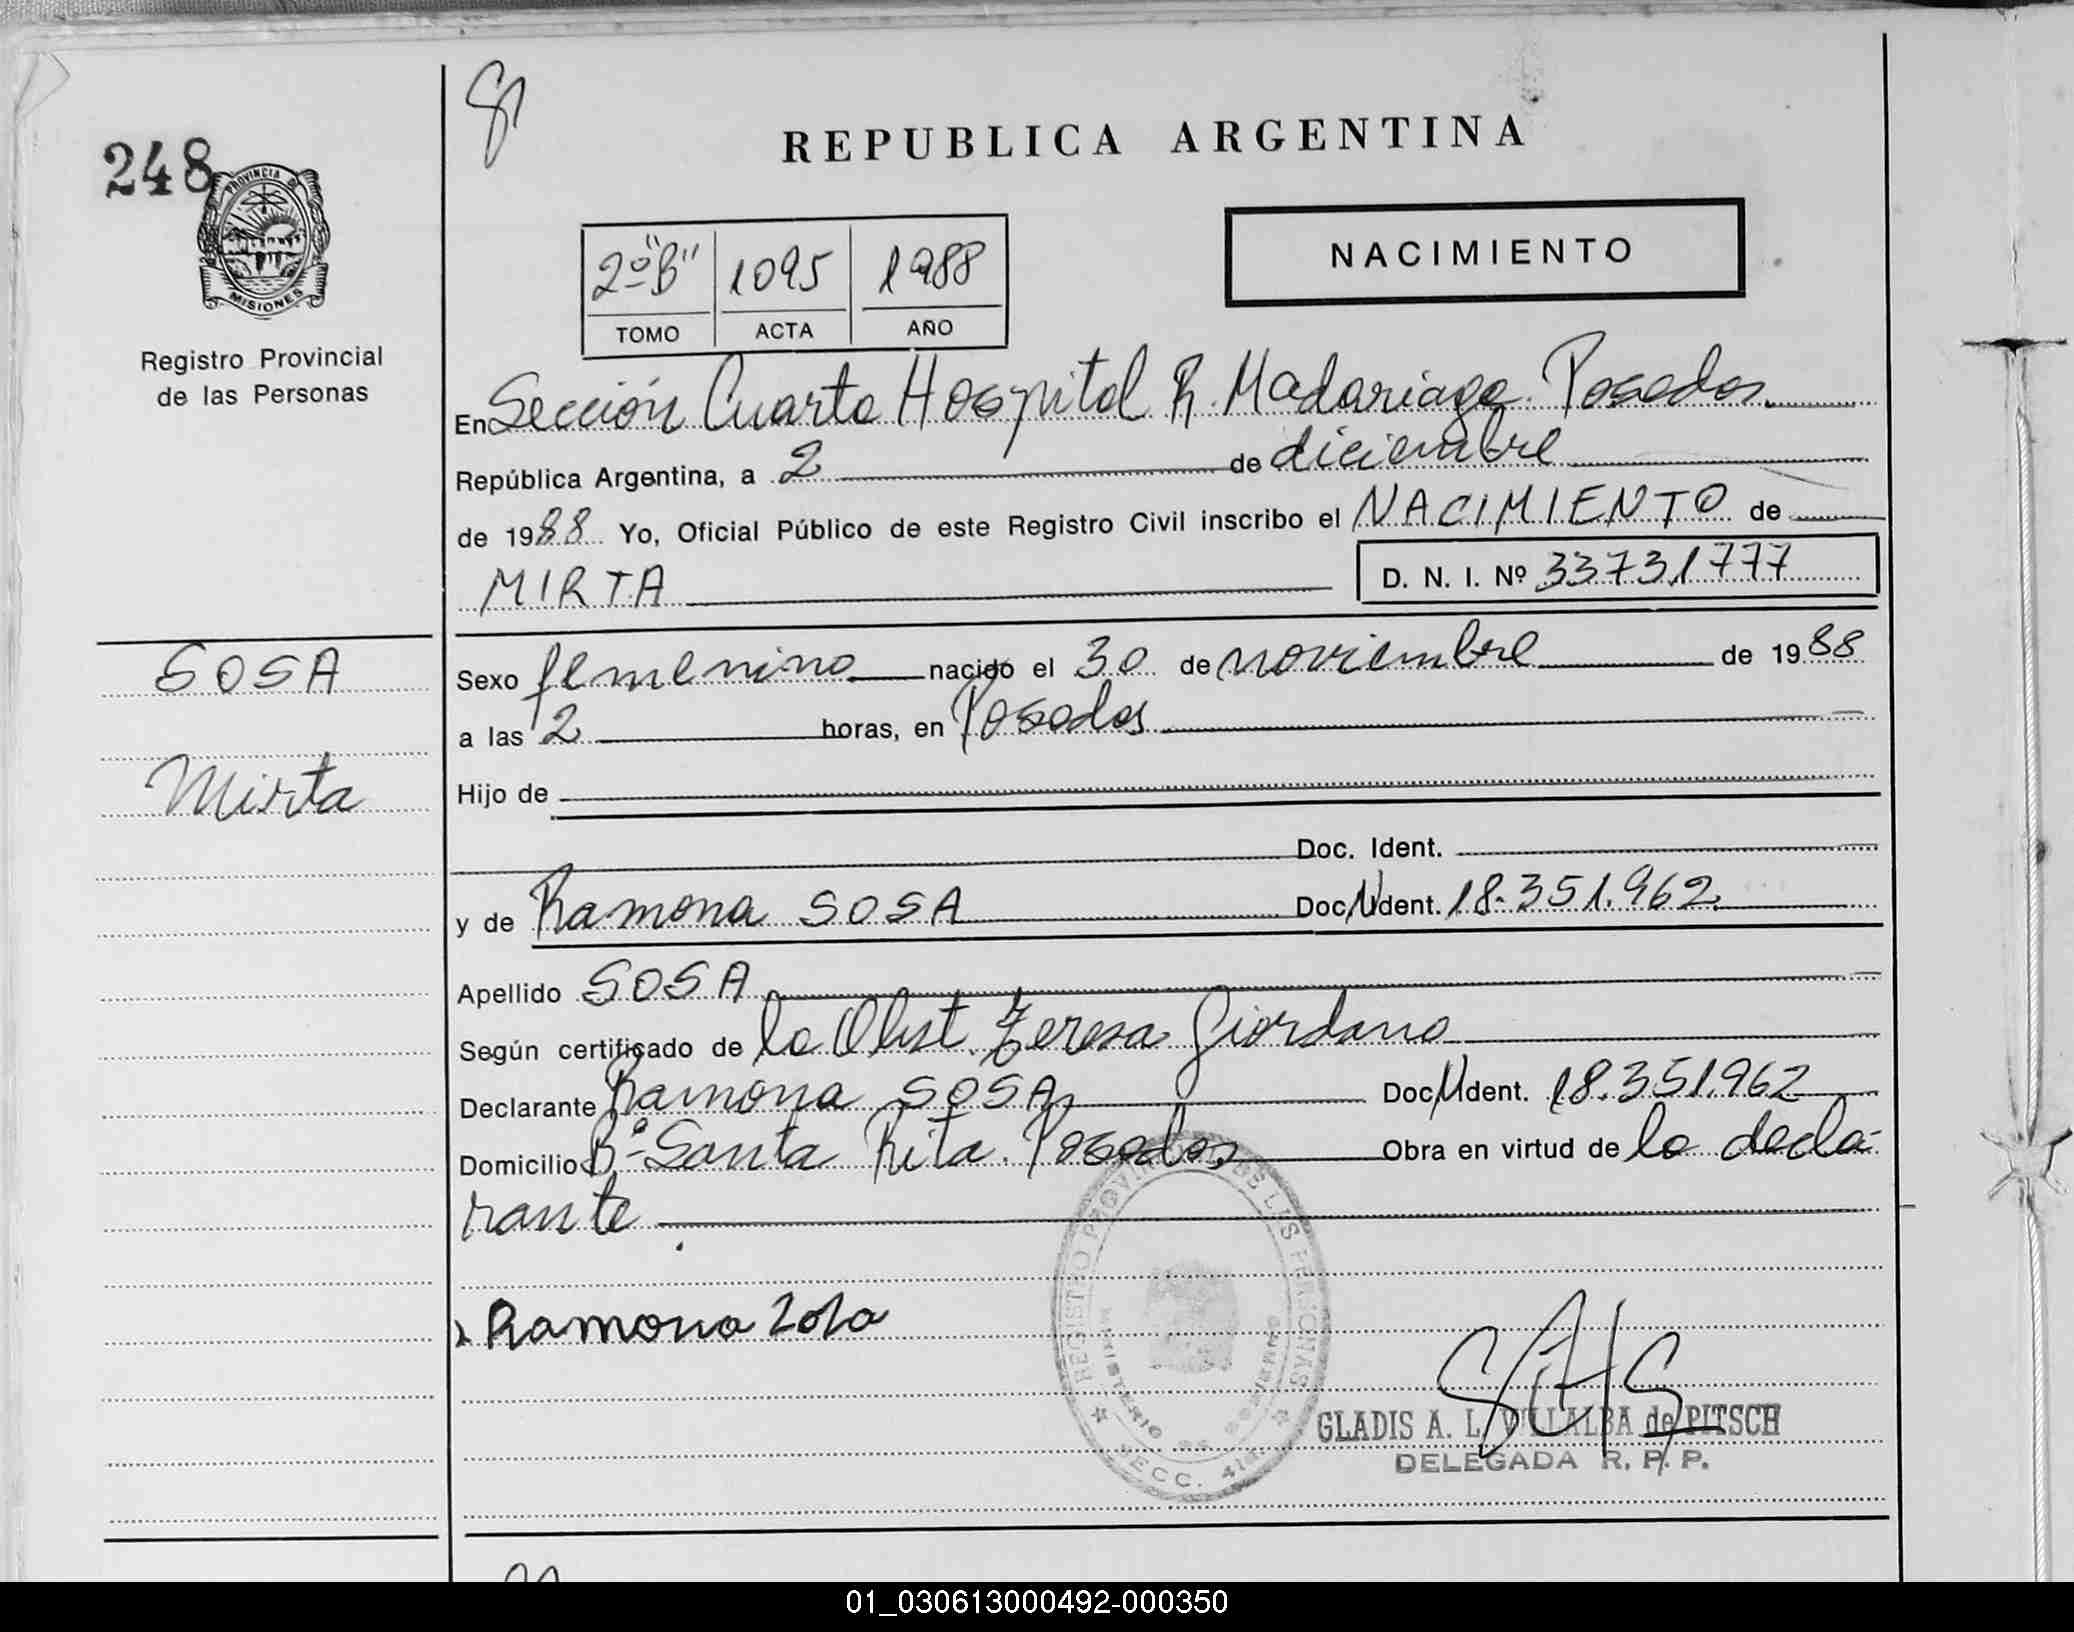 248
PROVINCIA DE
MISIONES
Registro Provincial
de las Personas
REPUBLICA ARGENTINA
NACIMIENTO
2º "B" 1095 1988
TOMO ACTA AÑO
En Sección Cuarta Hospital R. Madariaga. Posadas.
República Argentina, a 2 de diciembre
de 1988 Yo, Oficial Público de este Registro Civil inscribo el NACIMIENTO de
MIRTA D. N. I. Nº 33731777
SOSA
Mirta
Sexo femenino nacido el 30 de noviembre de 1988
a las 2 horas, en Posadas
Hijo de
Doc. Ident.
y de Ramona SOSA Doc. Ident. 18.351.962
Apellido SOSA
Según certificado de la Obst. Teresa Giordano
Declarante Ramona SOSA Doc. Ident. 18.351.962
Domicilio Bº Santa Rita. Posadas Obra en virtud de la decla-
rante
Ramona Sosa
REGISTRO PROVINCIAL DE LAS PERSONAS
MINISTERIO DE GOBIERNO
SECC. 4ta.
GLADIS A. L. VILLALBA de PITSCH
DELEGADA R. P. P.
01_030613000492-000350